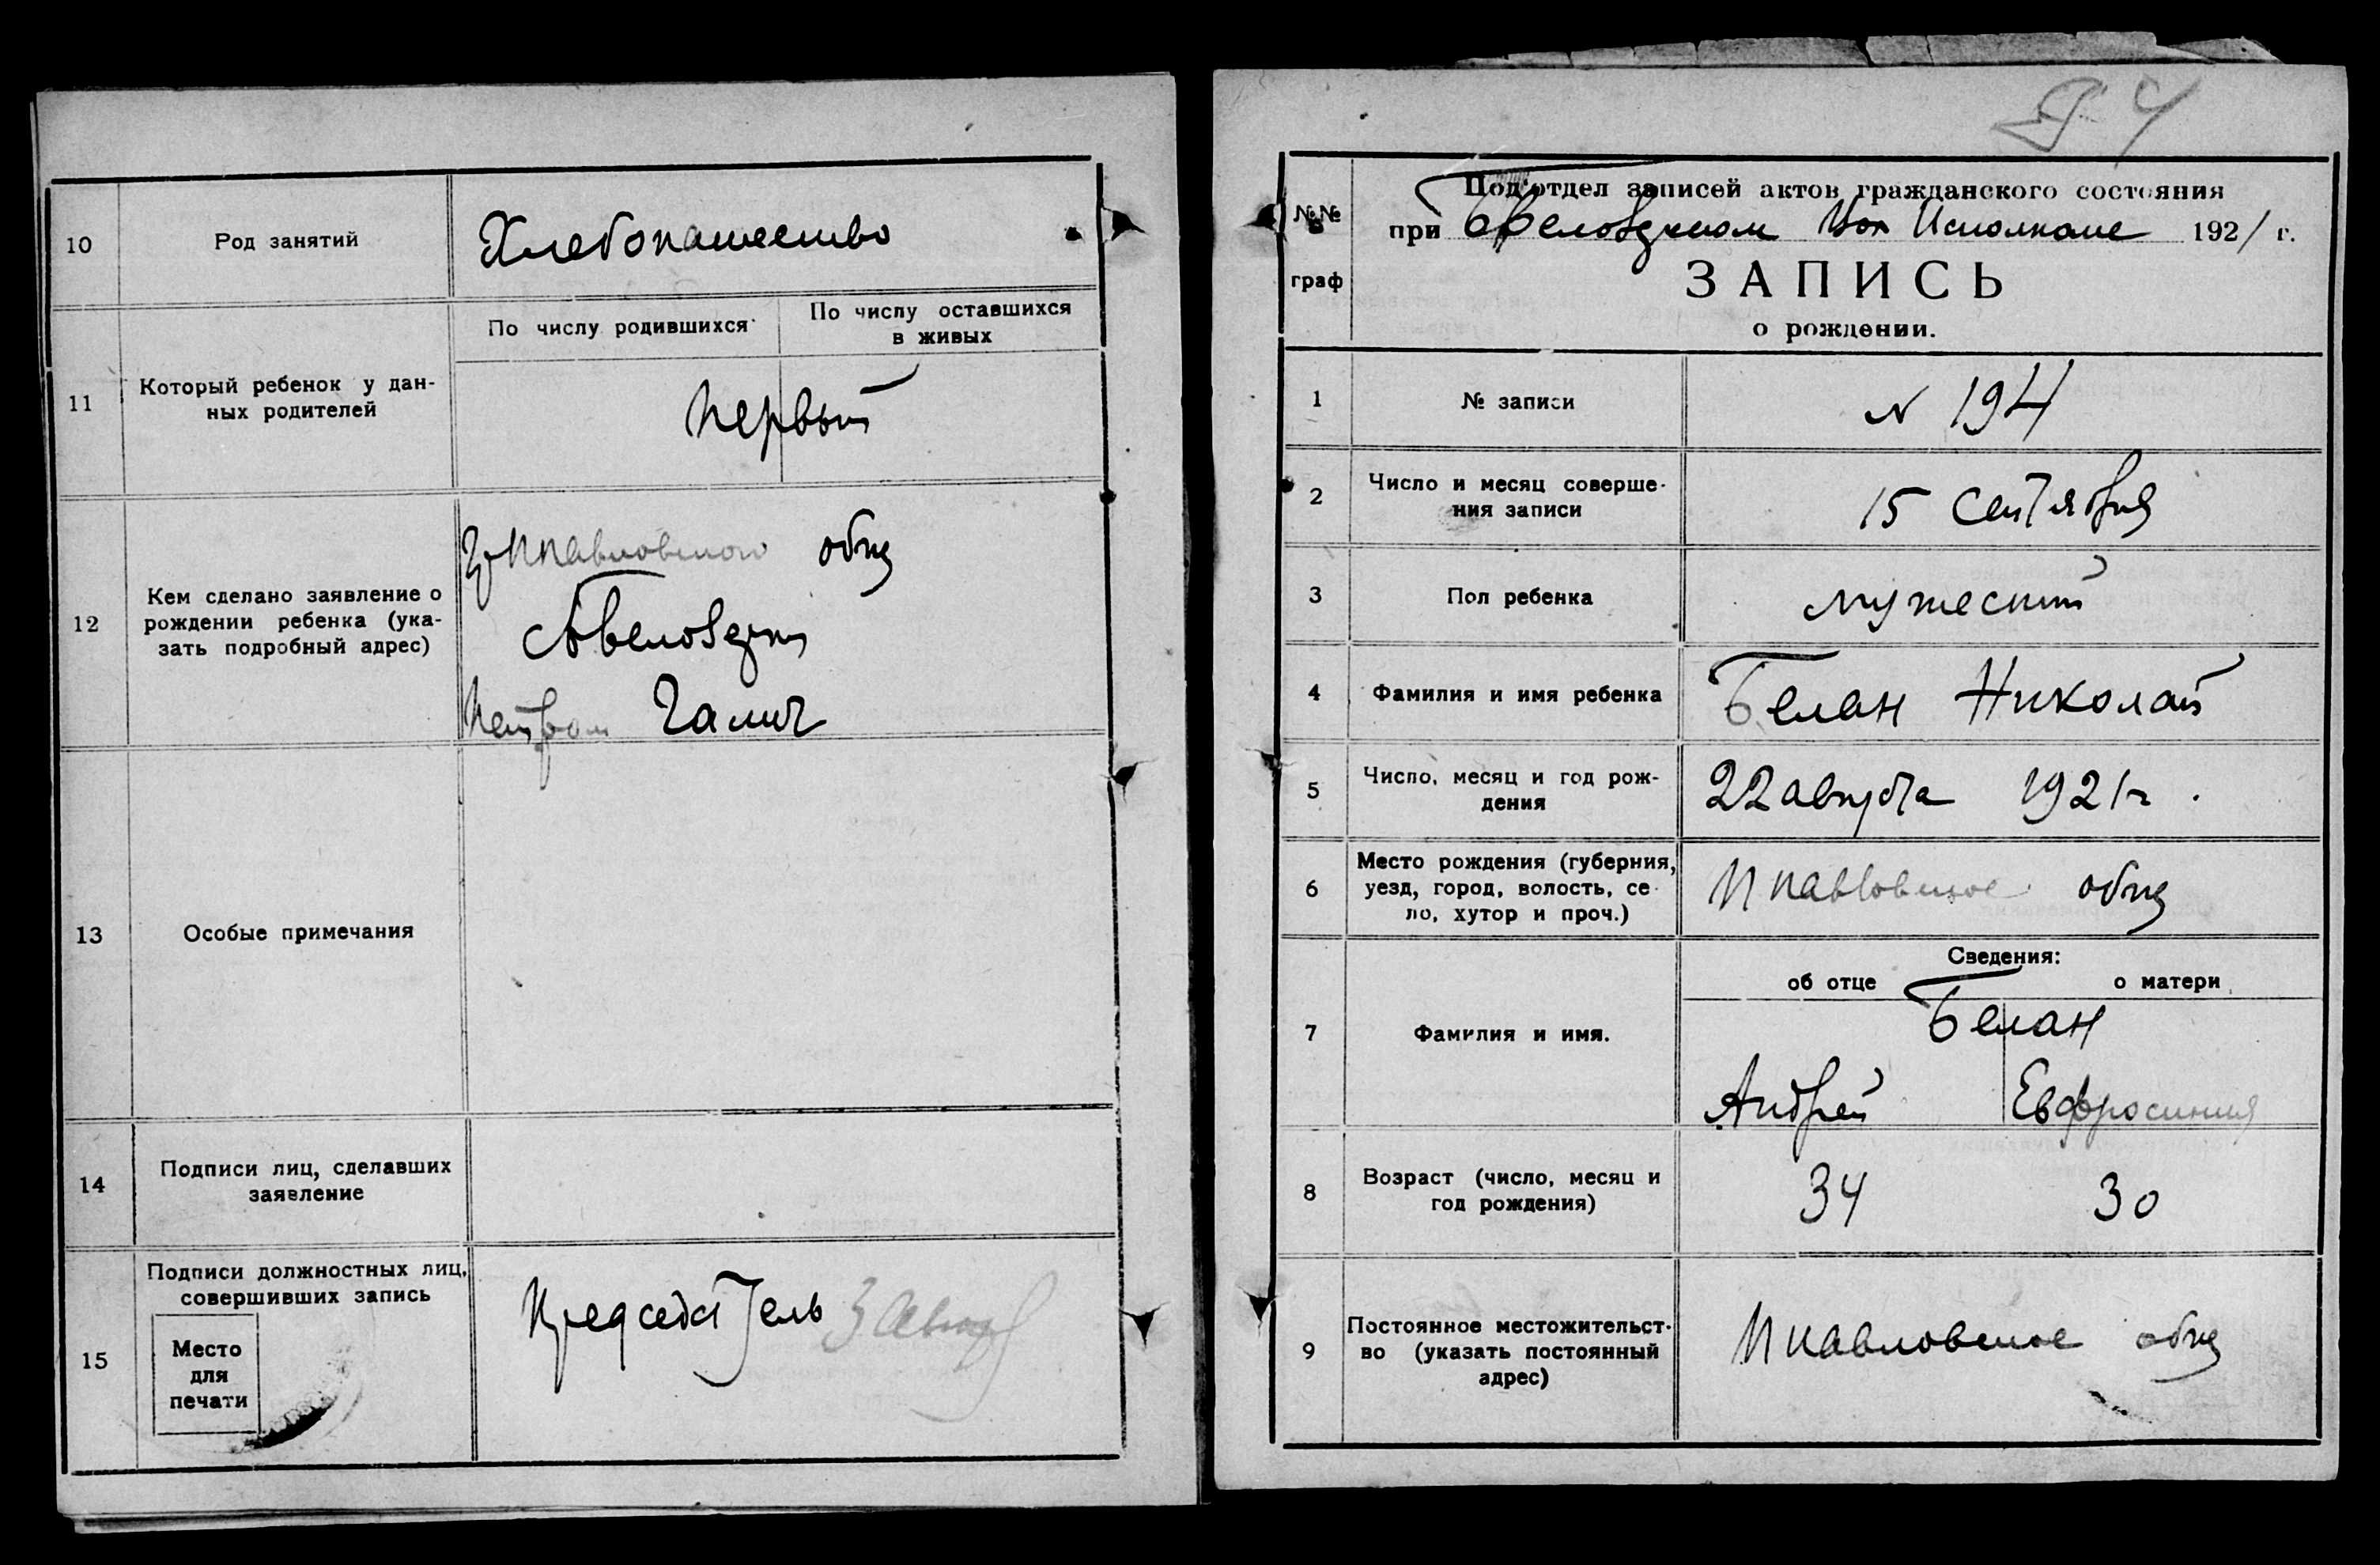 10
Род занятий
Хлебопашество
11
Который ребенок у дан-
ных родителей
По числу родившихся
По числу оставшихся
в живых
Первый
12
Кем сделано заявление о
рождении ребенка (ука-
зать подробный адрес)
общ
Петром Галич
13
Особые примечания
14
Подписи лиц, сделавших
заявление
15
Подписи должностных лиц,
совершивших запись
Место
для
печати
Председатель
№№
граф
Под'отдел записей актов гражданского состояния
при Беловодском Вол Исполкоме 1921 г.
ЗАПИСЬ
о рождении.
1
№ записи
N 194
2
Число и месяц соверше-
ния записи
15 Сентября
3
Пол ребенка
мужеский
4
Фамилия и имя ребенка
Белан Николай
5
Число, месяц и год рож-
дения
22 августа 1921 г.
6
Место рождения (губерния,
уезд, город, волость, се-
ло, хутор и проч.)
Ипавловское общ
7
Фамилия и имя.
Сведения:
об отце
о матери
Белан
Андрей
Евфросиния
8
Возраст (число, месяц и
год рождения)
34
30
9
Постоянное местожительст-
во (указать постоянный
адрес)
Ипавловское общ